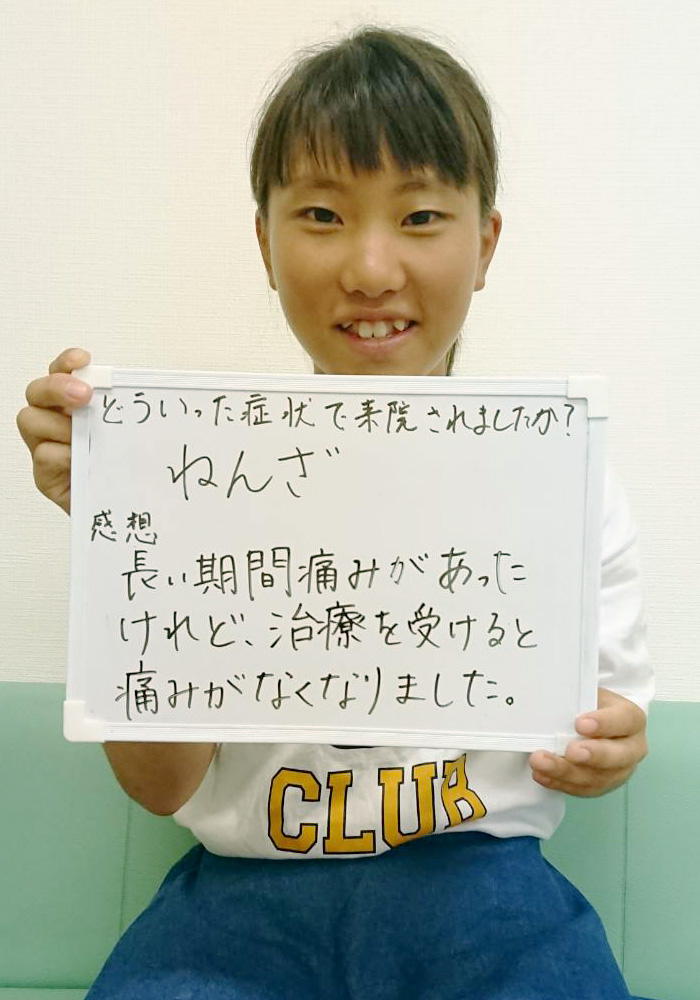 どういった症状で来院されましたか?
ねんざ
感想
長い期間痛みがあった
けれど、治療を受けると
痛みがなくなりました。
CLUB